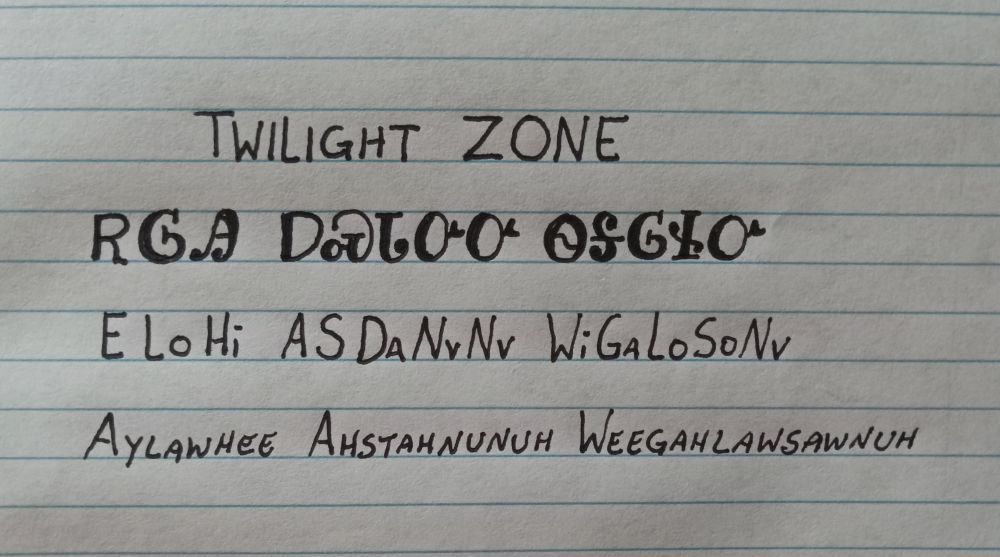 TWILIGHT ZONE
ᎡᎶᎯ ᎠᏍᏓᏅᏅ ᏫᎦᎶᏐᏅ
ELoHi ASDaNvNv WiGaLoSoNv
AYLAWHEE AHSTAHNUNUH WEEGAHLAWSAWNUH